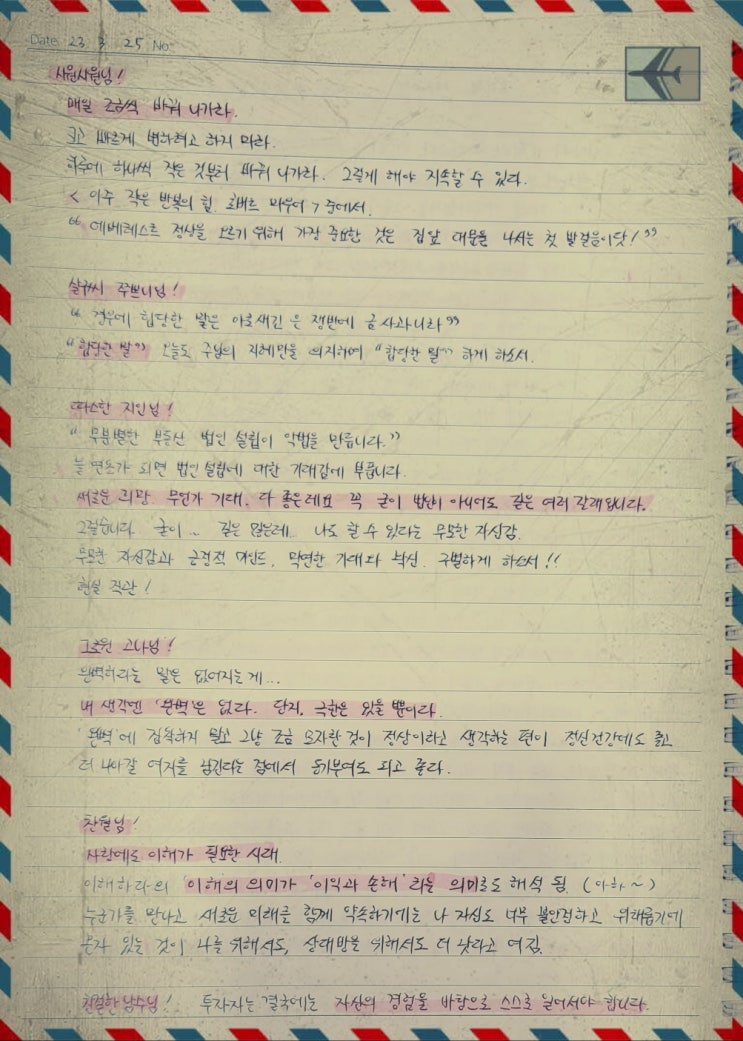 Date 23 3 25 No
사원사원님!
매일 조금씩 바꿔 나가라.
크고 빠르게 변하려고 하지 마라.
하루에 하나씩 작은 것부터 바꿔 나가라. 그렇게 해야 지속할 수 있다.
< 아주 작은 반복의 힘. 로버트 마우어 > 중에서.
"에베레스트 정상을 오르기 위해 가장 중요한 것은 집앞 대문을 나서는 첫 발걸음이닷!"
살구씨 주쁘니님!
"경우에 합당한 말은 아로새긴 은 쟁반에 금 사과니라"
"합당한 말" 오늘도 주님의 지혜만을 의지하여 "합당한 말" 하게 하소서.
따스한 지인님!
"무분별한 부동산 법인 설립이 악법을 만듭니다."
늘 연초가 되면 법인설립에 대한 기대감에 부릅니다.
새로운 희망. 무언가 기대. 다 좋은데요 꼭 굳이 법인이 아니어도 길은 여러 갈래입니다.
그렇습니다. 굳이.. 길은 많은데.. 나도 할 수 있다라는 무모한 자신감.
무모한 자신감과 긍정적 마인드, 막연한 기대와 확신. 구별하게 하소서!!
현실 직관!
그로윈 고나님!
완벽하라는 말은 없어지는게...
내 생각엔 '완벽'은 없다. 단지, 극한은 있을 뿐이다.
'완벽'에 집착하지 말고 그냥 조금 모자란 것이 정상이라고 생각하는 편이 정신건강에도 좋고
더 나아갈 여지를 남긴다는 점에서 동기부여도 되고 좋다.
찬월님!
사랑에도 이해가 필요한 시대.
이해하다의 '이해의 의미가 '이익과 손해'라는 의미로도 해석 됨. (아하~)
누군가를 만나고 새로운 미래를 함께 약속하기에는 나 자신도 너무 불안정하고 위태롭기에
혼자 있는 것이 나를 위해서도, 상대방을 위해서도 더 낫다고 여김.
친절한 남수님! 투자자는 결국에는 자산의 경험을 바탕으로 스스로 일어서야 합니다.